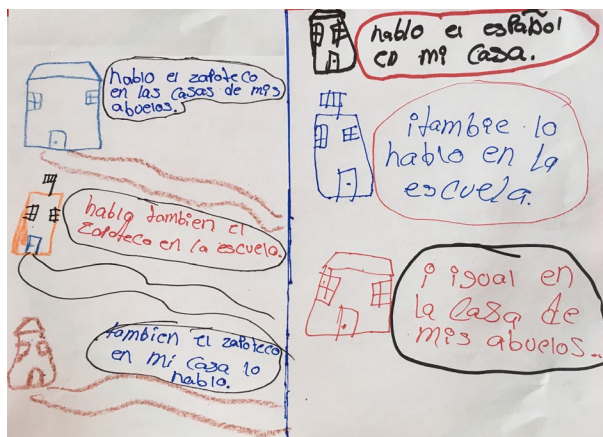 hablo el zapoteco
en las casas de mis
abuelos.
hablo tambien el
zapoteco en la escuela.
tambien el zapoteco
en mi casa lo
hablo.
hablo el español
en mi casa.
itambie lo
hablo en la
escuela.
i igual en
la casa de
mis abuelos..